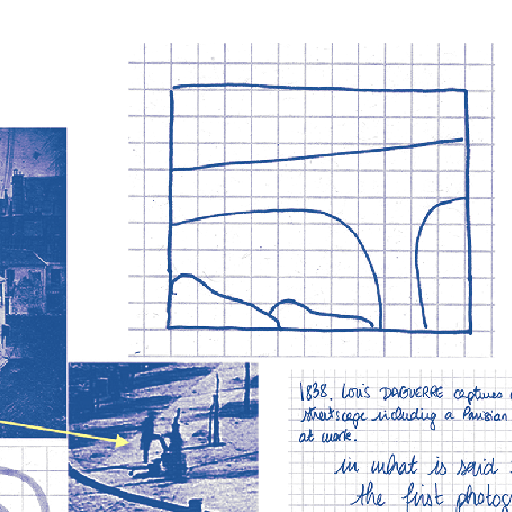 1838, LOUIS DAGUERRE captures
streetscape including a Parisian
at work.
in what is said
the first photog